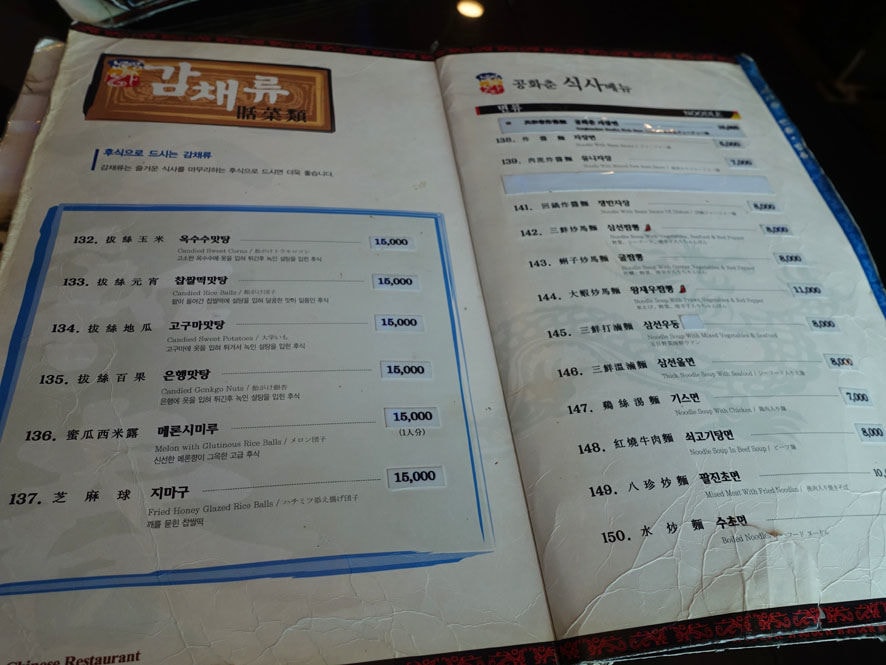 감채류
甛菜類
후식으로 드시는 감채류
감채류는 즐거운 식사를 마무리하는 후식으로 드시면 더욱 좋습니다.
132. 拔絲玉米 옥수수맛탕 15,000
Candied Sweet Corns /
고소한 옥수수에 옷을 입혀 튀긴후 녹인 설탕을 입힌 후식
133. 拔絲元宵 찹쌀떡맛탕 15,000
Candied Rice Balls / 飴がけ団子
팥이 들어간 찹쌀떡에 설탕을 입혀 달콤한 맛이 일품인 후식
134. 拔絲地瓜 고구마맛탕 15,000
Candied Sweet Potatoes / 大学いも
고구마에 옷을 입혀 튀겨서 녹인 설탕을 입힌 후식
135. 拔絲百果 은행맛탕 15,000
Candied Gonkgo Nuts / 飴がけ銀杏
은행에 옷을 입혀 튀긴후 녹인 설탕을 입힌 후식
136. 蜜瓜西米露 메론시미루 15,000
(1人分)
Melon with Glutinous Rice Balls / メロン団子
신선한 메론향이 그윽한 고급 후식
137. 芝麻球 지마구 15,000
Fried Honey Glazed Rice Balls / ハチミツ添え揚げ団子
깨를 묻힌 찹쌀떡
Chinese Restaurant
공화춘 식사메뉴
면류 NOODLE
공화춘 자장면 10,000
138. 炸醬麵 자장면 5,000
139. 肉泥炸醬麵 유니자장 7,000
141. 回鍋炸醬麵 쟁반자장 8,000
142. 三鮮炒馬麵 삼선짬뽕 8,000
Noodle Soup With Vegetables, Seafood & Red Pepper
143. 蠣子炒馬麵 굴짬뽕 8,000
Noodle Soup With Oyster Vegetables & Red Pepper
144. 大蝦炒馬麵 왕새우짬뽕 11,000
Noodle Soup With Prawn Vegetables & Red Pepper
145. 三鮮打滷麵 삼선우동 8,000
Noodle Soup With Mixed Vegetables & Seafood
五目野菜海鮮ウドン
146. 三鮮溫滷麵 삼선울면 8,000
Thick Noodle Soup With Seafood /
147. 鷄絲湯麵 기스면 7,000
Noodle Soup With Chicken / 鶏肉入り麺
148. 紅燒牛肉麵 쇠고기탕면 8,000
Noodle Soup In Beef Soup / ビーフ麺
149. 八珍炒麵 팔진초면
Mixed Meat With Fried Noodles / 焼肉入り焼きそば
150. 水炒麵 수초면
Boiled Noodle